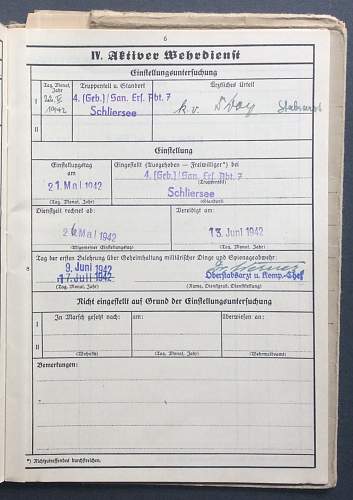 6
IV. Aktiver Wehrdienst
Einstellungsuntersuchung
Tag, Monat, Jahr
Truppenteil u. Standort
Ärztliches Urteil
I
1942
4. (Geb.)/San. Ers. Abt. 7
Schliersee
k.v.
Stabsarzt
II
Einstellung
Einstellungstag am
Eingestellt (Ausgehoben – Freiwilliger*) bei
21. Mai 1942
4. (Geb.)/San. Ers. Abt. 7
(Truppenteil)
Schliersee
(Tag, Monat, Jahr)
(Standort)
Dienstzeit rechnet ab:
Vereidigt am:
Mai 1942
13. Juni 1942
(Allgemeiner Einstellungstag)
(Tag, Monat, Jahr)
8
Tag der ersten Belehrung über Geheimhaltung militärischer Dinge und Spionageabwehr:
9. Juni 1942
17. Juli 1942
Oberstabsarzt u. Komp.-Chef
(Tag, Monat, Jahr)
(Name, Dienstgrad, Dienststellung)
Nicht eingestellt auf Grund der Einstellungsuntersuchung
In Marsch gesetzt nach:
am:
überwiesen an:
I
II
(Wohnort)
(Tag, Monat, Jahr)
(Wehrmeldeamt)
Bemerkungen:
*) Nichtzutreffendes durchstreichen.